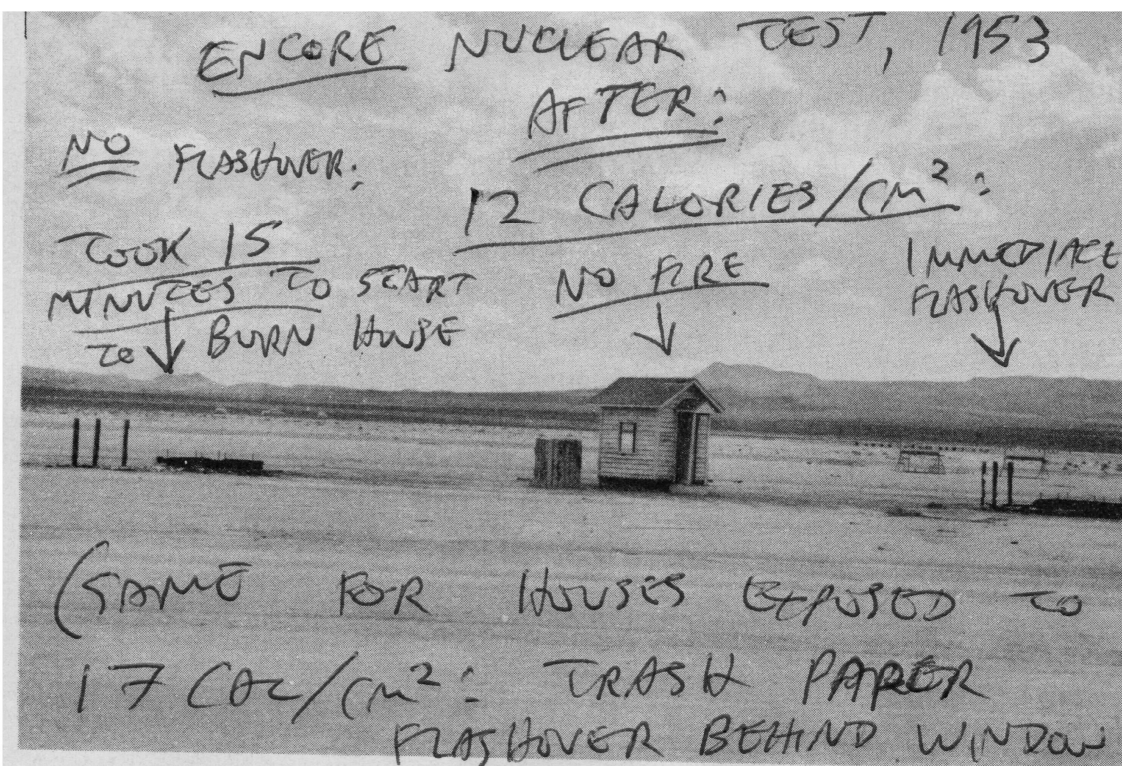 ENCORE NUCLEAR TEST, 1953
AFTER:
NO FLASHOVER:
12 CALORIES/CM²:
TOOK 15
MINUTES TO START
TO BURN HOUSE
NO FIRE
IMMEDIATE
FLASHOVER
(SAME FOR HOUSES EXPOSED TO
17 CAL/CM²: TRASH PAPER
FLASHOVER BEHIND WINDOW